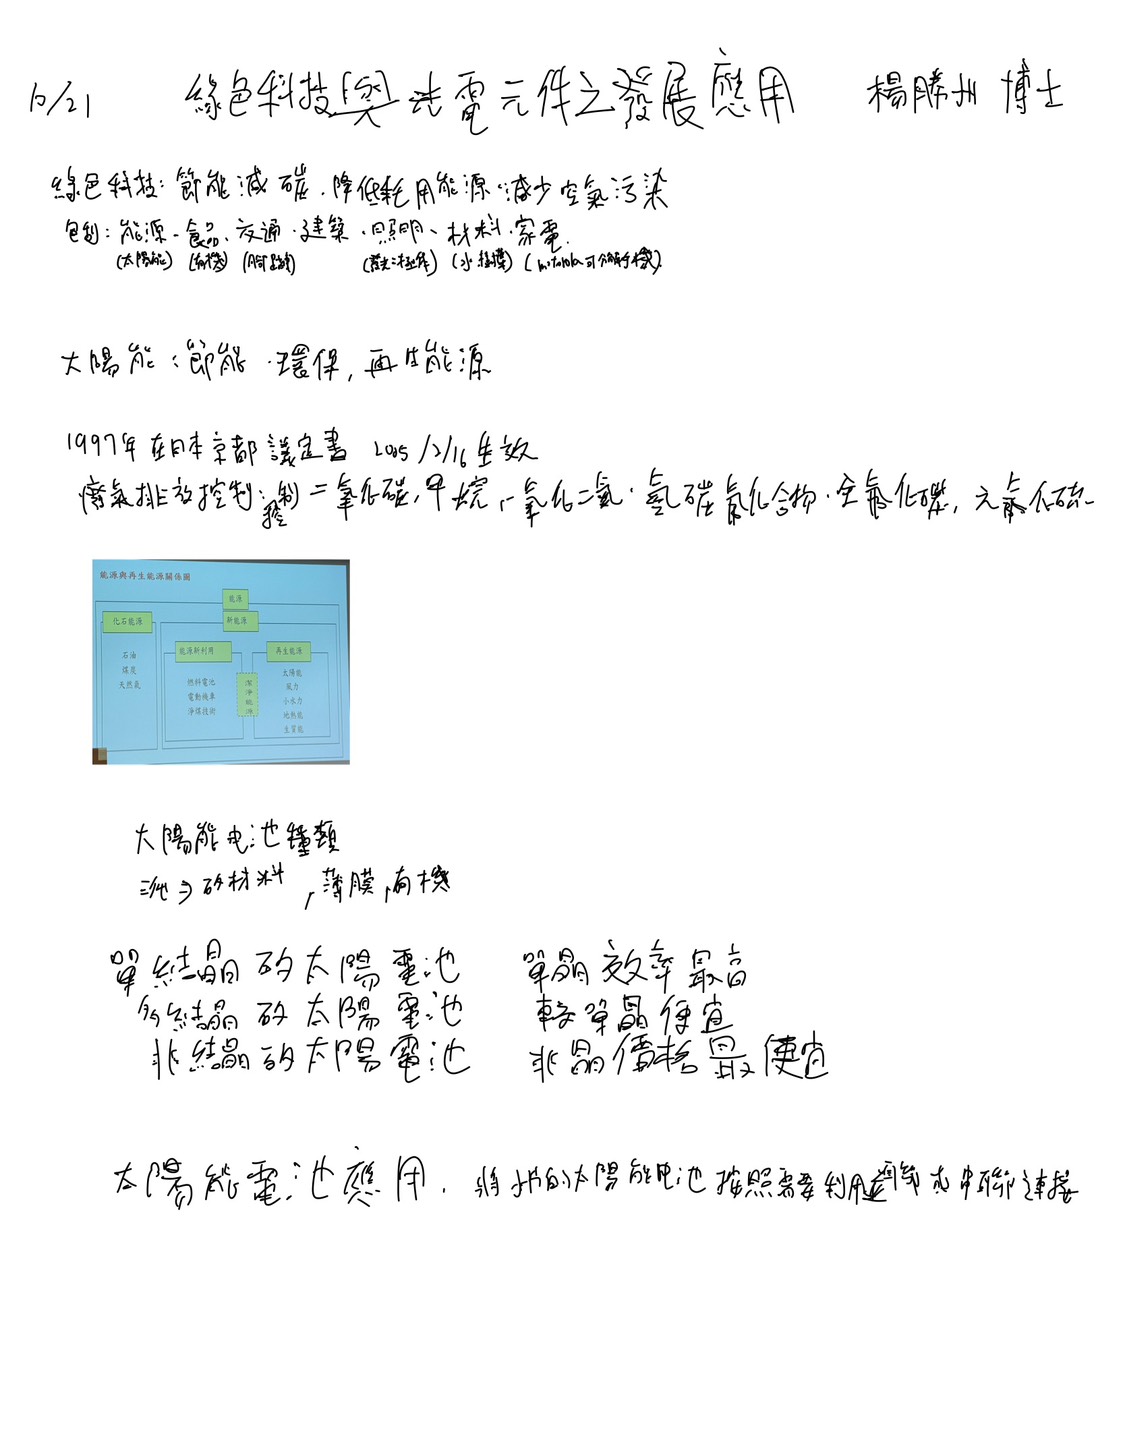 10/21 綠色科技與光電元件之發展應用 楊勝州 博士
綠色科技:節能減碳.降低耗用能源.減少空氣污染
包刮:能源、食品、交通、建築、照明、材料、家電
(太陽能) (有機) (腳踏車) (發光二極体) (水性漆) (motorola可分解手機)
太陽能:節能.環保,再生能源
1997年在日本京都議定書 2005/2/16生效
廢氣排放控制:控制二氧化碳,甲烷,一氧化二氮.氫碳氟化合物.全氟化碳,六氟化硫
能源與再生能源關係圖
能源
化石能源
新能源
石油
煤炭
天然氣
能源新利用
燃料電池
電動機車
淨煤技術
潔淨能源
再生能源
太陽能
風力
小水力
地熱能
生質能
太陽能电池種類
矽材料,薄膜,有機
單結晶矽太陽電池 單晶效率最高
多結晶矽太陽電池 較單晶便宜
非結晶矽太陽電池 非晶價格最便宜
太陽能電池應用. 將 的太陽能电池按照需要利用並聯或串聯連接